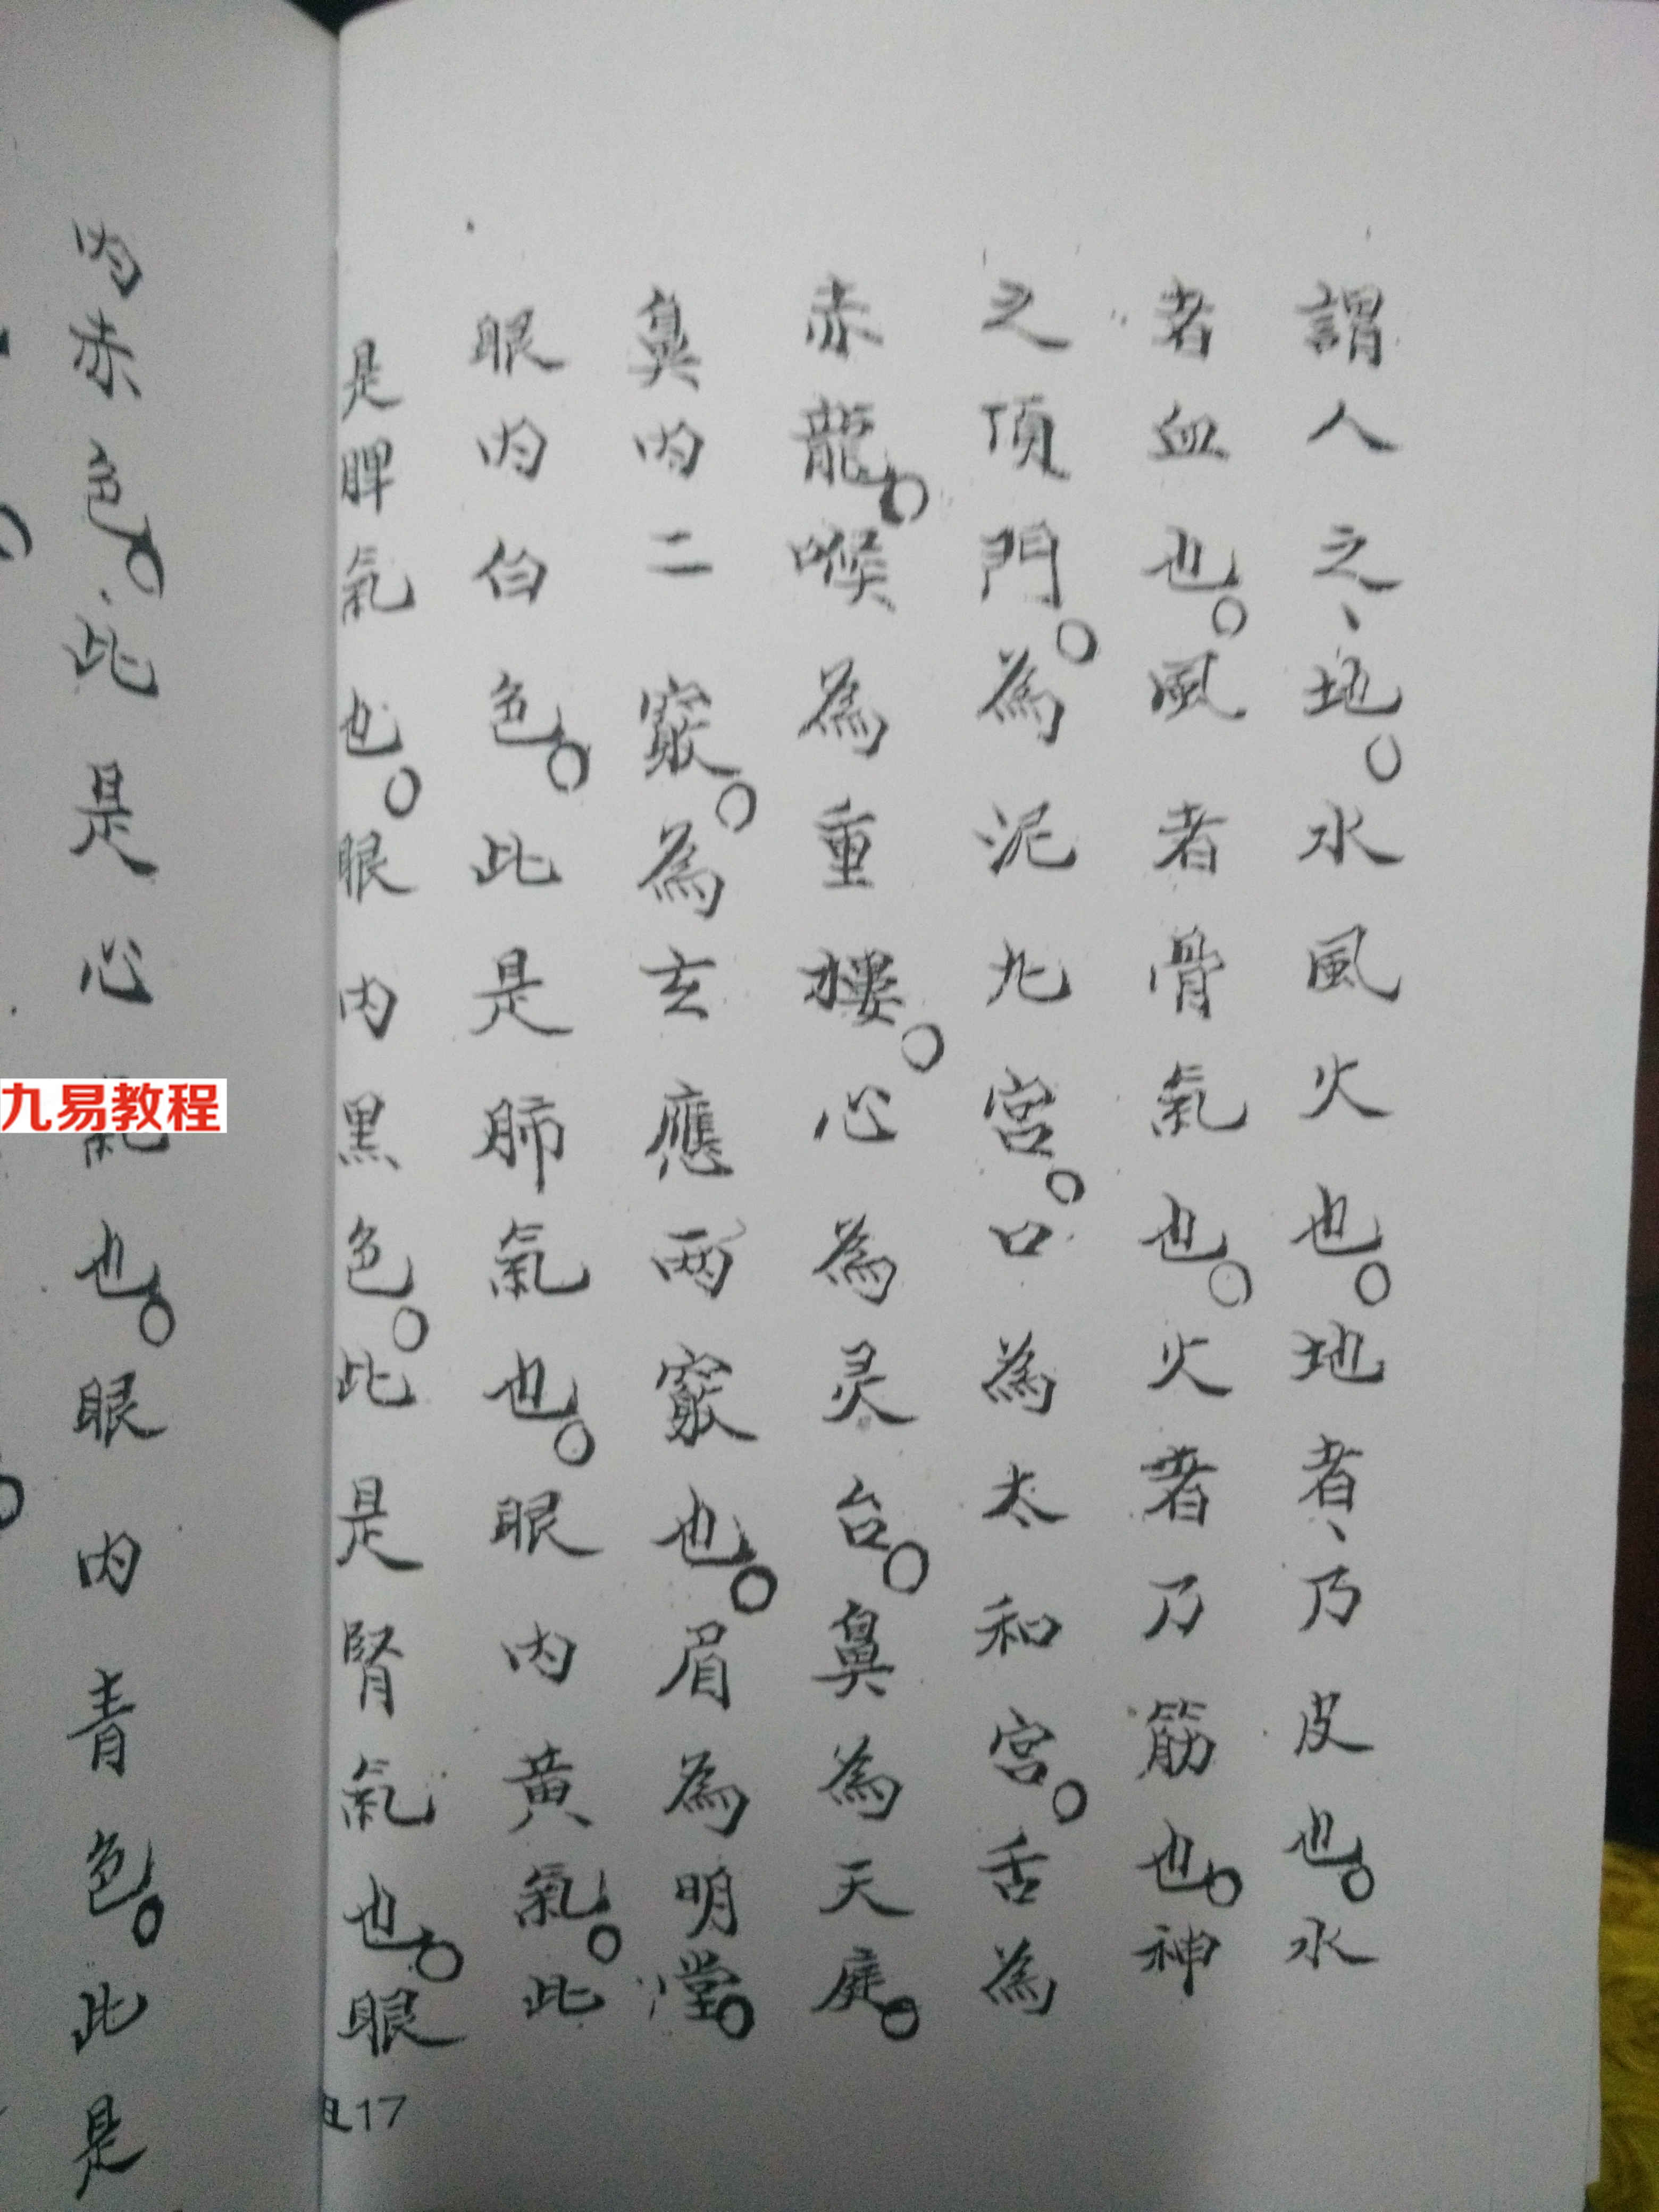 謂人之、地。水風火也。地者、乃皮也。水
者血也。風者骨氣也。火者乃筋也。神
之頂門。為泥九宮。口為太和宮。舌為
赤龍。喉為重樓。心為灵台。鼻為天庭。
鼻内二竅。為玄應兩竅也。眉為明堂。
眼内白色。此是肺氣也。眼内黃氣。此
是脾氣也。眼内黑色。此是腎氣也。眼
内赤色。此是心氣也。眼内青色。此是
17
九易教程